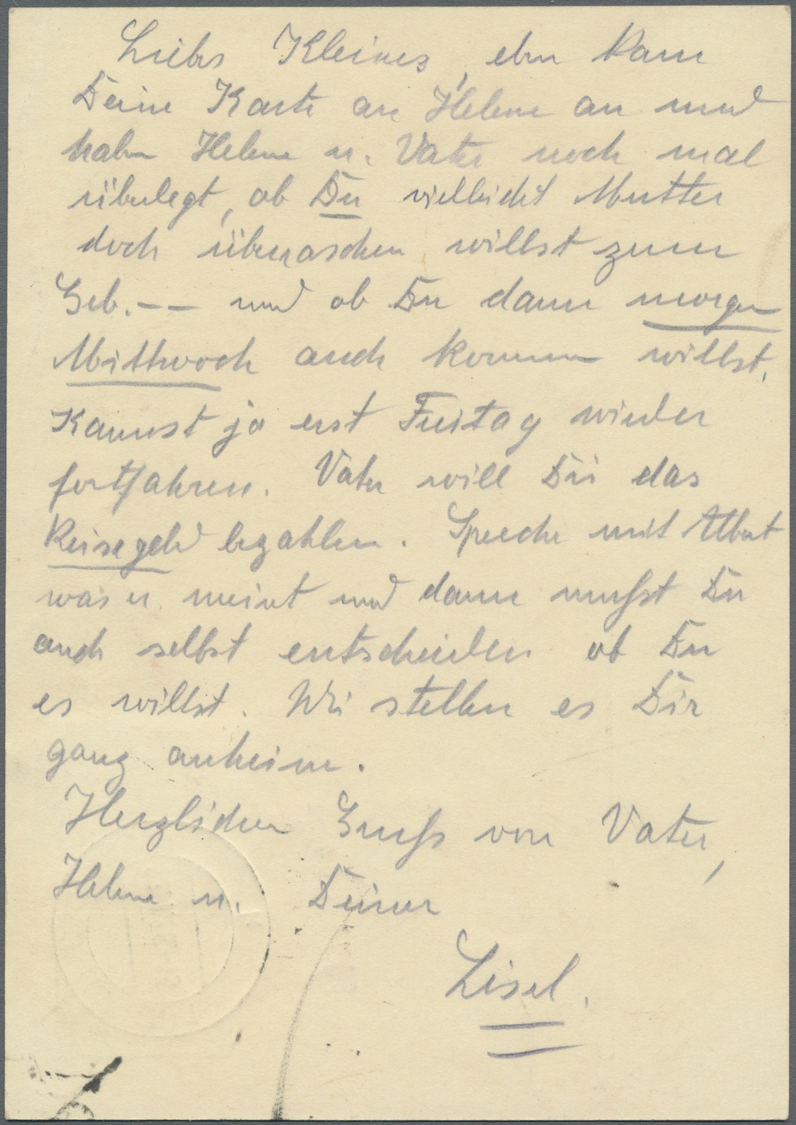 Liebes Kleines, eben kam
Deine Karte an Helene an und
haben Helene u. Vater noch mal
überlegt, ob Du vielleicht Mutter
doch überraschen willst zum
Geb. —— und ob Du dann morgen
Mittwoch auch kommen willst.
Kannst ja erst Freitag wieder
fortfahren. Vater will Dir das
Reisegeld bezahlen. Spreche mit Albert
was er meint und dann mußt Du
auch selbst entscheiden ob Du
es willst. Wir stellen es Dir
ganz anheim.
Herzlichen Gruß von Vater,
Helene u. Deiner
Lisel.